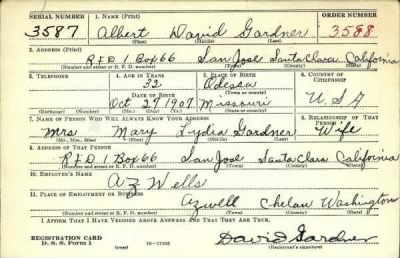 SERIAL NUMBER 1. NAME (Print) ORDER NUMBER
3587 Albert David Gardner 3588
(First) (Middle) (Last)
2. ADDRESS (Print)
R F D 1 Box 66 San Jose Santa Clara California
(Number and street or R. F. D. number) (Town) (County) (State)
3. TELEPHONE 4. AGE IN YEARS 5. PLACE OF BIRTH 6. COUNTRY OF CITIZENSHIP
32 Odessa
DATE OF BIRTH (Town or county)
Oct 27 1907 Missouri U.S.A
(Exchange) (Number) (Mo.) (Day) (Yr.) (State or country)
7. NAME OF PERSON WHO WILL ALWAYS KNOW YOUR ADDRESS 8. RELATIONSHIP OF THAT PERSON
Mrs Mary Lydia Gardner Wife
(Mr., Mrs., Miss) (First) (Middle) (Last)
9. ADDRESS OF THAT PERSON
R F D 1 Box 66 San Jose Santa Clara California
(Number and street or R. F. D. number) (Town) (County) (State)
10. EMPLOYER'S NAME
A Z Wells
11. PLACE OF EMPLOYMENT OR BUSINESS
Azwell Chelan Washington
(Number and street or R. F. D. number) (Town) (County) (State)
I AFFIRM THAT I HAVE VERIFIED ABOVE ANSWERS AND THAT THEY ARE TRUE.
REGISTRATION CARD
D. S. S. Form 1 (over) David Gardner
(Registrant's signature)